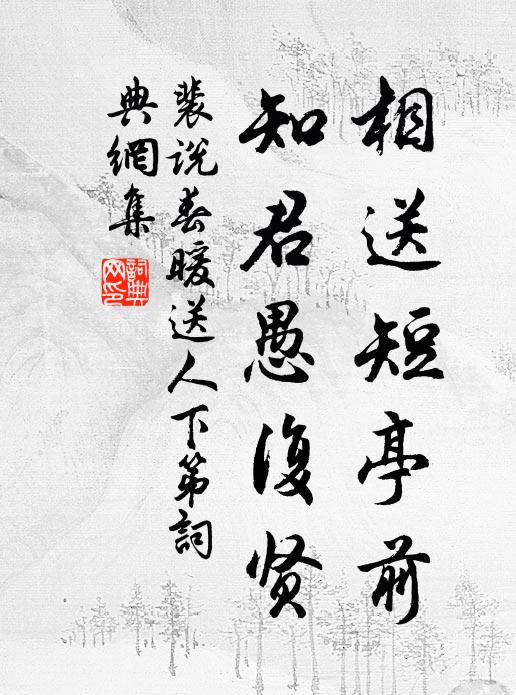 相送短亭前
知君愚復贤
裴说春暖送人下第詞
典網集
詞典
网印